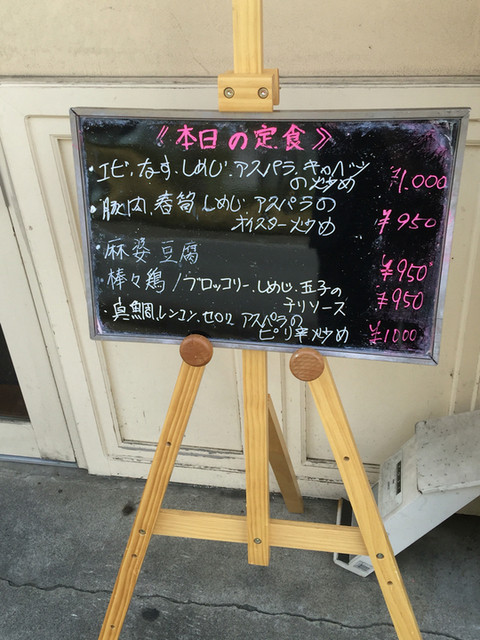 《本日の定食》
・エビ、なす、しめじ、アスパラ、キャベツ
の炒め ¥1,000
・豚肉、春筍、しめじ、アスパラの
オイスター炒め ¥950
・麻婆豆腐 ¥950
棒々鶏/ブロッコリー、しめじ、玉子の
チリソース ¥950
・真鯛、レンコン、セロリ、アスパラの
ピリ辛炒め ¥1000